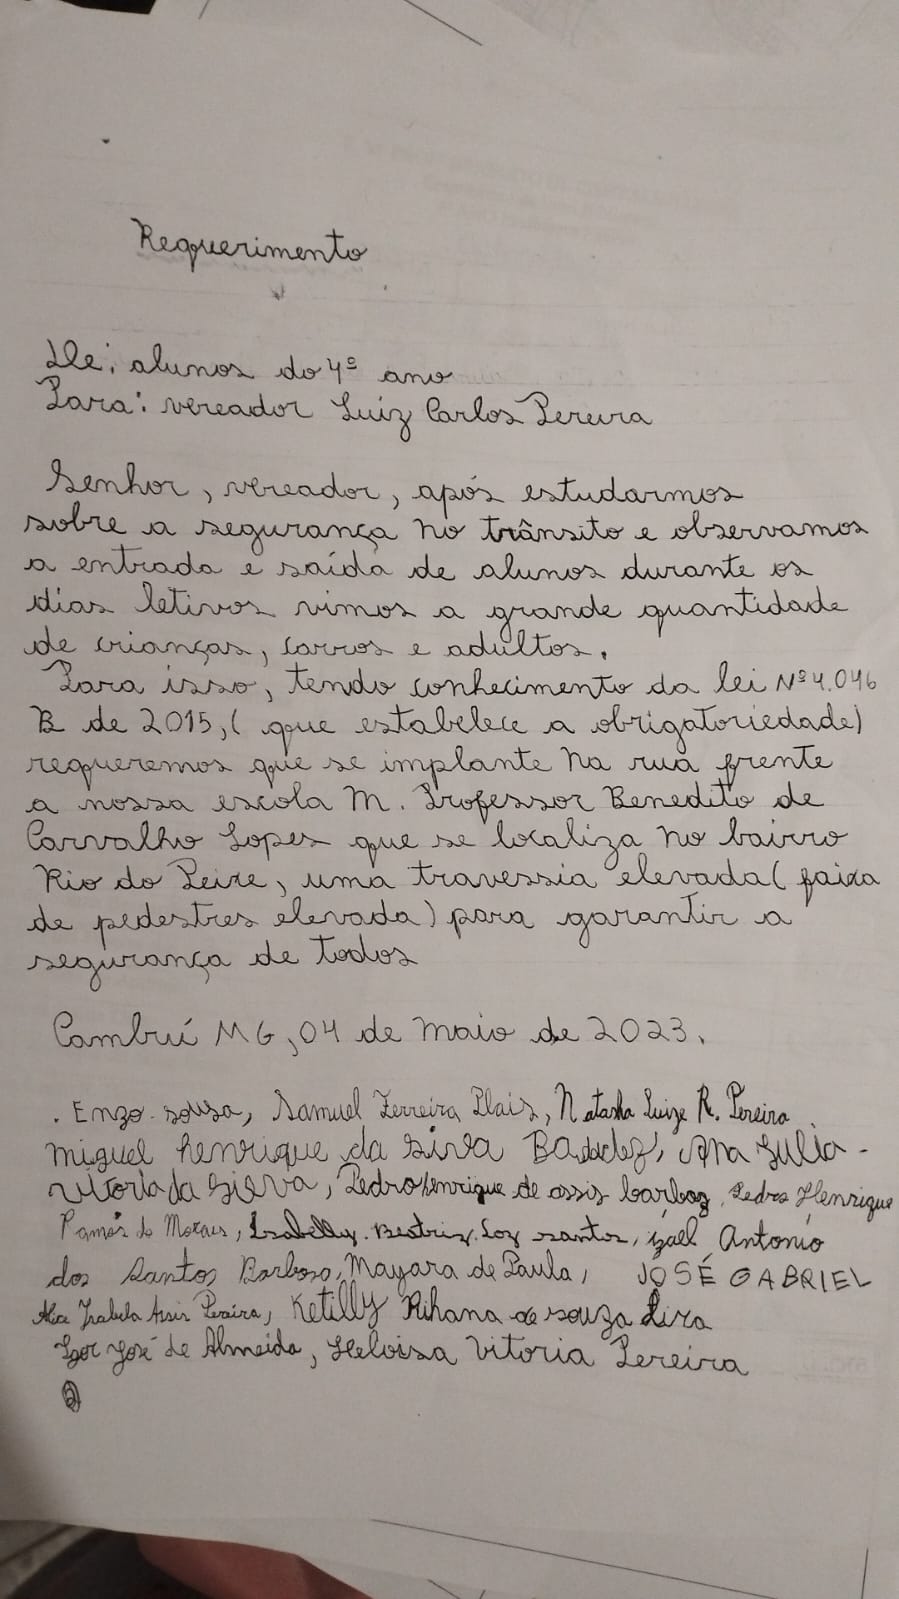 Requerimento
De: alunos do 4º ano
Para: vereador Luiz Carlos Pereira
Senhor, vereador, após estudarmos
sobre a segurança no trânsito e observamos
a entrada e saída de alunos durante os
dias letivos vimos a grande quantidade
de crianças, carros e adultos.
Para isso, tendo conhecimento da lei Nº 4.046
B de 2015, ( que estabelece a obrigatoriedade)
requeremos que se implante na rua frente
a nossa escola M. Professor Benedito de
Carvalho Lopes que se localiza no bairro
Rio do Peixe, uma travessia elevada ( faixa
de pedestres elevada) para garantir a
segurança de todos
Cambuí MG, 04 de maio de 2023.
. Enzo sousa, Samuel Ferreira, Natasha Luize R. Pereira
miguel henrique da Ana Julia
vitoria da Pedro henrique de assis barbosa, Pedro Henrique
de Moraes, Isabelly. Beatriz. santos, Antonio
dos Santos Barbosa, Mayara de Paula, JOSÉ GABRIEL
Alice Isabela Assis Pereira, Ketilly Rihana de souza Lira
Igor José de Almeida, Heloisa Vitoria Pereira